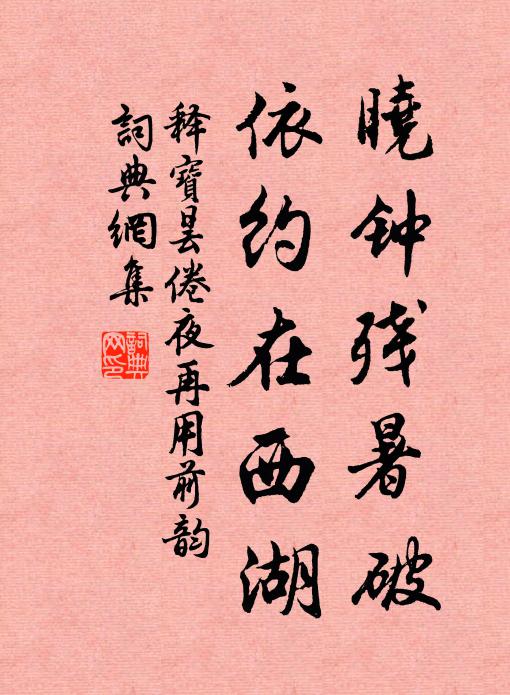 曉钟残暑破
依约在西湖
释寶昙倦夜再用前韵
詞典網集
詞典网印